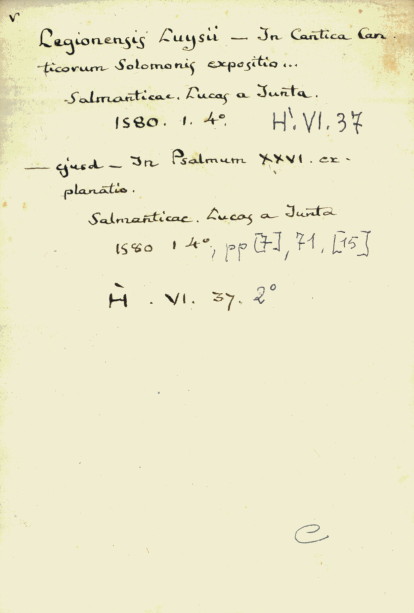 v
Legionensis Luysii — In Cantica Can
ticorum Solomonis expositio...
Salmanticae. Lucas a Junta.
1580. 1. 4º. H'. VI. 37
— ejusd — In Psalmum XXVI. ex-
planatio.
Salmanticae. Lucas a Junta
1580 1 4º, pp [7], 71, [15]
H̀ . VI. 37. 2º
C